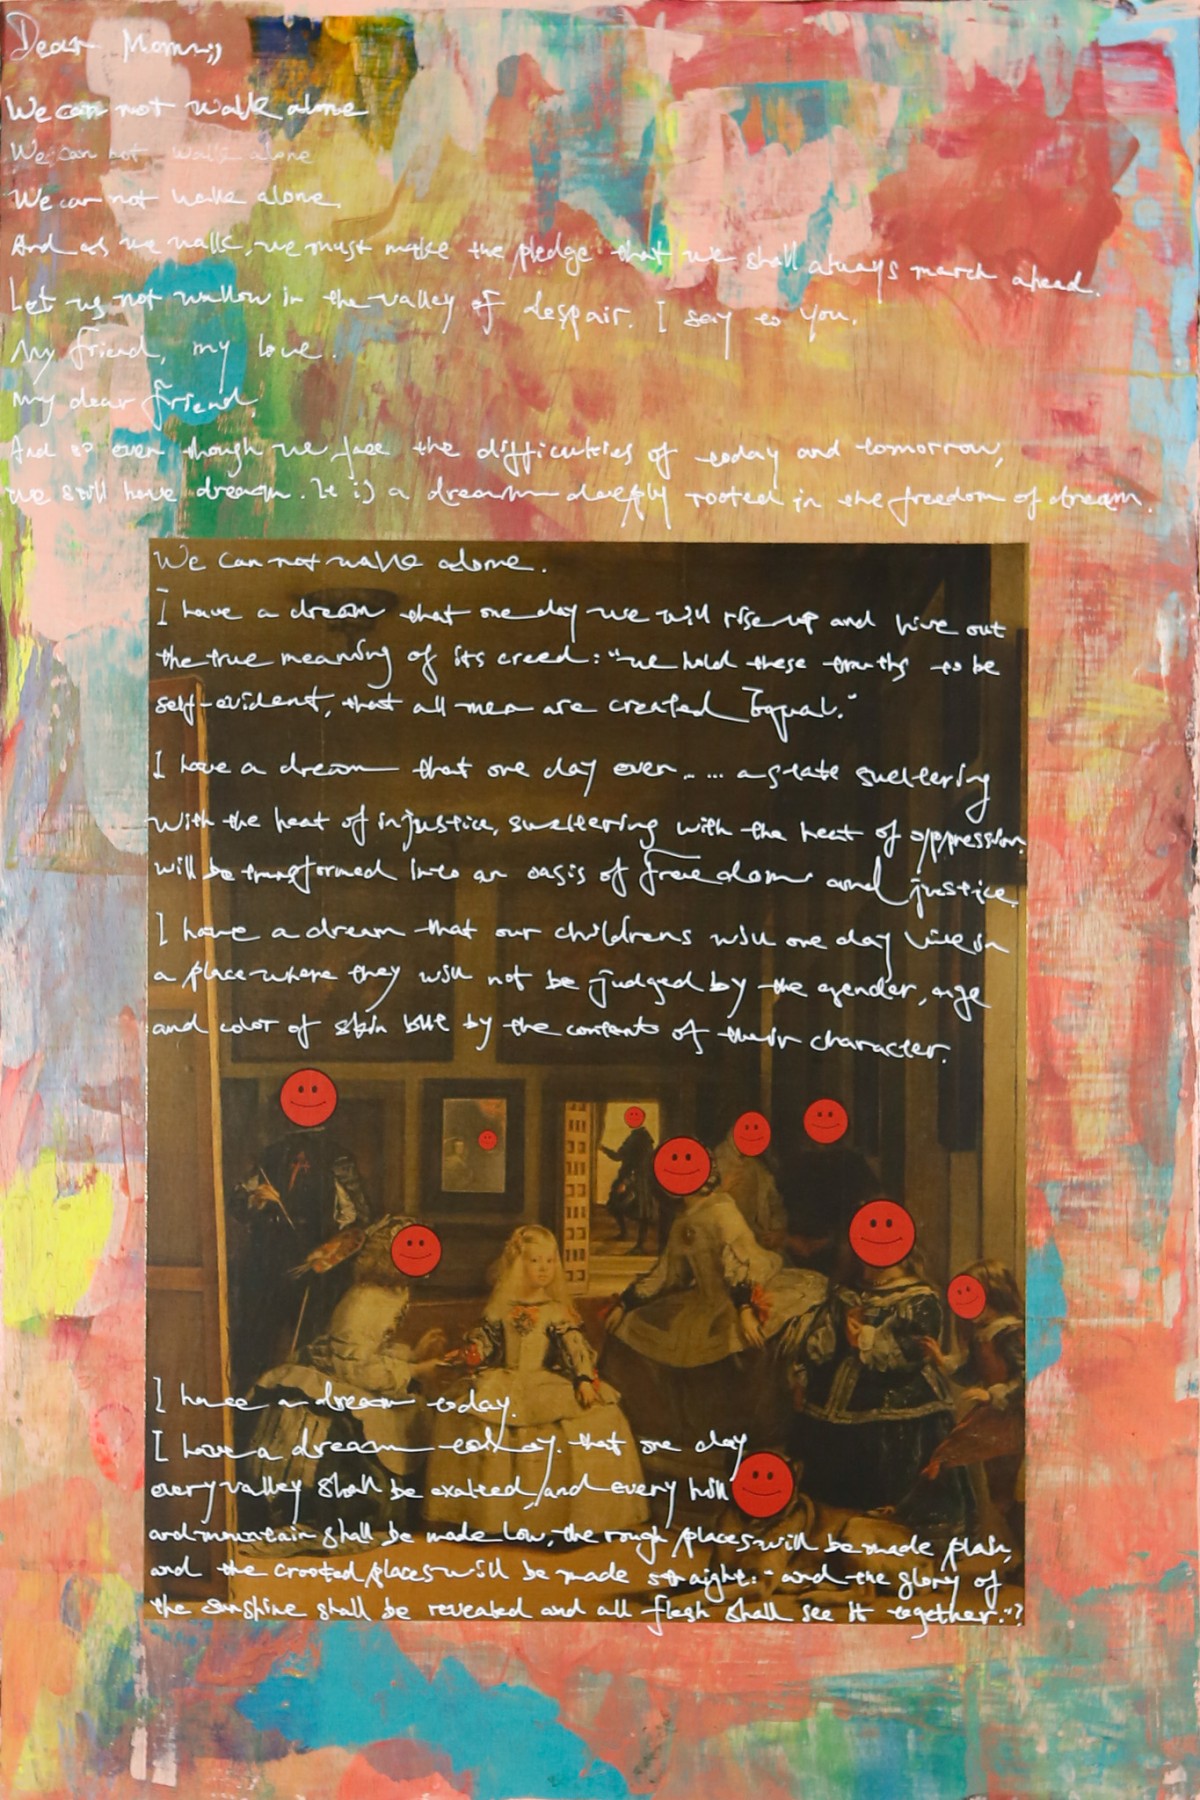 Dear Mommy,
We can not walk alone
We can not walk alone
We can not walk alone.
And as we walk, we must make the pledge that we shall always march ahead.
Let us not wallow in the valley of despair. I say to you,
My friend, my love.
my dear friend,
And so even though we face the difficulties of today and tomorrow,
we still have dream. It is a dream deeply rooted in the freedom of dream.
We can not walk alone.
I have a dream that one day we will rise up and live out
the true meaning of its creed: "we hold these truths to be
self-evident, that all men are created Equal."
I have a dream that one day even..... a state sweltering
with the heat of injustice, sweltering with the heat of oppression.
will be transformed into an oasis of freedom and justice.
I have a dream that our childrens will one day live in
a place where they will not be judged by the gender, age
and color of skin but by the contents of their character.
I have a dream today.
I have a dream today. that one day
every valley shall be exalted, and every hill
and mountain shall be made low, the rough places will be made plain,
and the crooted places will be made straight: "and the glory of
the sunshine shall be revealed and all flesh shall see it together."?